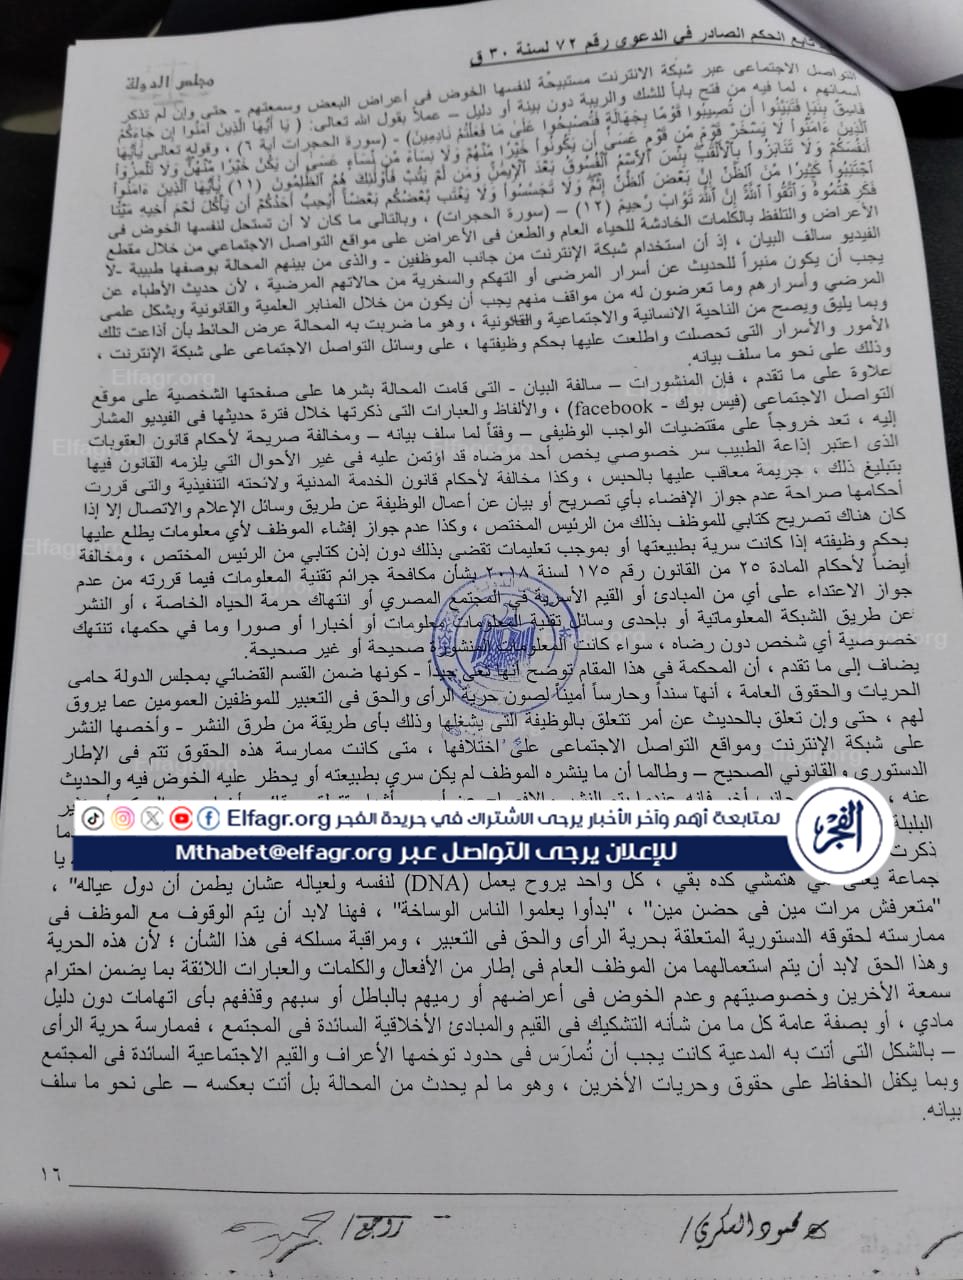 تابع الحكم الصادر في الدعوى رقم ٧٢ لسنة ٣٠ ق
مجلس الدولة
التواصل الاجتماعى عبر شبكة الانترنت مستبيحة لنفسها الخوض فى أعراض البعض وسمعتهم - حتى وإن لم تذكر
أسمائهم ، لما فيه من فتح باباً للشك والريبة دون بينة أو دليل – عملاً بقول الله تعالى: ( يَا أَيُّهَا الَّذِينَ آمَنُوا إِن جَاءَكُمْ
فَاسِقٌ بِنَبَإٍ فَتَبَيَّنُوا أَن تُصِيبُوا قَوْمًا بِجَهَالَةٍ فَتُصْبِحُوا عَلَىٰ مَا فَعَلْتُمْ نَادِمِينَ) - (سورة الحجرات آية ٦) ، وقوله تعالى يَٰأَيُّهَا
الَّذِينَ ءَامَنُواْ لَا يَسْخَرْ قَوْمٌ مِّن قَوْمٍ عَسَىٰ أَن يَكُونُواْ خَيْرًا مِّنْهُمْ وَلَا نِسَاءٌ مِّن نِّسَاءٍ عَسَىٰ أَن يَكُنَّ خَيْرًا مِّنْهُنَّ وَلَا تَلْمِزُواْ
أَنفُسَكُمْ وَلَا تَنَابَزُواْ بِالْأَلْقَٰبِ بِئْسَ الِاسْمُ الْفُسُوقُ بَعْدَ الْإِيمَٰنِ وَمَن لَّمْ يَتُبْ فَأُوْلَٰئِكَ هُمُ الظَّٰلِمُونَ (١١) يَٰأَيُّهَا الَّذِينَ ءَامَنُواْ
اجْتَنِبُواْ كَثِيرًا مِّنَ الظَّنِّ إِنَّ بَعْضَ الظَّنِّ إِثْمٌ وَلَا تَجَسَّسُواْ وَلَا يَغْتَب بَّعْضُكُم بَعْضًا أَيُحِبُّ أَحَدُكُمْ أَن يَأْكُلَ لَحْمَ أَخِيهِ مَيْتًا
فَكَرِهْتُمُوهُ وَاتَّقُواْ اللَّهَ إِنَّ اللَّهَ تَوَّابٌ رَّحِيمٌ (١٢) – (سورة الحجرات) ، وبالتالى ما كان لا أن تستحل لنفسها الخوض فى
الأعراض والتلفظ بالكلمات الخادشة للحياء العام والطعن فى الأعراض على مواقع التواصل الاجتماعي من خلال مقطع
الفيديو سالف البيان ، إذ أن استخدام شبكة الإنترنت من جانب الموظفين - والذى من بينهم المحالة بوصفها طبيبة -لا
يجب أن يكون منبراً للحديث عن أسرار المرضى أو التهكم والسخرية من حالاتهم المرضية ، لأن حديث الأطباء عن
المرضي وأسرارهم وما تعرضون له من مواقف منهم يجب أن يكون من خلال المنابر العلمية والقانونية وبشكل علمى
وبما يليق ويصح من الناحية الانسانية والاجتماعية والقانونية ، وهو ما ضربت به المحالة عرض الحائط بأن أذاعت تلك
الأمور والأسرار التى تحصلت واطلعت عليها بحكم وظيفتها ، على وسائل التواصل الاجتماعى على شبكة الإنترنت ،
وذلك على نحو ما سلف بيانه.
علاوة على ما تقدم ، فإن المنشورات – سالفة البيان - التى قامت المحالة بشرها على صفحتها الشخصية على موقع
التواصل الاجتماعى (فيس بوك - facebook) ، والألفاظ والعبارات التى ذكرتها خلال فترة حديثها فى الفيديو المشار
إليه ، تعد خروجاً على مقتضيات الواجب الوظيفى – وفقاً لما سلف بيانه – ومخالفة صريحة لأحكام قانون العقوبات
الذى اعتبر إذاعة الطبيب سر خصوصي يخص أحد مرضاه قد اؤتمن عليه فى غير الأحوال التي يلزمه القانون فيها
بتبليغ ذلك ، جريمة معاقب عليها بالحبس ، وكذا مخالفة لأحكام قانون الخدمة المدنية ولائحته التنفيذية والتى قررت
أحكامها صراحة عدم جواز الإفضاء بأي تصريح أو بيان عن أعمال الوظيفة عن طريق وسائل الإعلام والاتصال إلا إذا
كان هناك تصريح كتابي للموظف بذلك من الرئيس المختص ، وكذا عدم جواز إفشاء الموظف لأي معلومات يطلع عليها
بحكم وظيفته إذا كانت سرية بطبيعتها أو بموجب تعليمات تقضي بذلك دون إذن كتابي من الرئيس المختص ، ومخالفة
أيضاً لأحكام المادة ٢٥ من القانون رقم ١٧٥ لسنة ٢٠١٨ بشأن مكافحة جرائم تقنية المعلومات فيما قررته من عدم
جواز الاعتداء على أي من المبادئ أو القيم الأسرية في المجتمع المصري أو انتهاك حرمة الحياه الخاصة ، أو النشر
عن طريق الشبكة المعلوماتية أو بإحدى وسائل تقنية المعلومات معلومات أو أخبارا أو صورا وما في حكمها، تنتهك
خصوصية أي شخص دون رضاه ، سواء كانت المعلومات المنشورة صحيحة أو غير صحيحة.
يضاف إلى ما تقدم ، أن المحكمة في هذا المقام توضح أنها تعي جيداً - كونها ضمن القسم القضائي بمجلس الدولة حامى
الحريات والحقوق العامة ، أنها سنداً وحارساً أميناً لصون حرية الرأى والحق فى التعبير للموظفين العمومين عما يروق
لهم ، حتى وإن تعلق بالحديث عن أمر تتعلق بالوظيفة التى يشغلها وذلك بأى طريقة من طرق النشر - وأخصها النشر
على شبكة الإنترنت ومواقع التواصل الاجتماعى على اختلافها ، متى كانت ممارسة هذه الحقوق تتم فى الإطار
الدستورى والقانوني الصحيح – وطالما أن ما ينشره الموظف لم يكن سري بطبيعته أو يحظر عليه الخوض فيه والحديث
عنه ،
البلبلة
لمتابعة أهم وآخر الأخبار يرجى الاشتراك في جريدة الفجر Elfagr.org
للإعلان يرجى التواصل عبر Mthabet@elfagr.org
الفجر
ذكرت
جماعة يعني هتمشي كده بقي ، كل واحد يروح يعمل (DNA) لنفسه ولعياله عشان يطمن أن دول عياله" ،
"متعرفش مرات مين فى حضن مين" ، "بدأوا يعلموا الناس الوساخة" ، فهنا لابد أن يتم الوقوف مع الموظف فى
ممارسته لحقوقه الدستورية المتعلقة بحرية الرأى والحق فى التعبير ، ومراقبة مسلكه فى هذا الشأن ؛ لأن هذه الحرية
وهذا الحق لابد أن يتم استعمالهما من الموظف العام فى إطار من الأفعال والكلمات والعبارات اللائقة بما يضمن احترام
سمعة الأخرين وخصوصيتهم وعدم الخوض فى أعراضهم أو رميهم بالباطل أو سبهم وقذفهم بأى اتهامات دون دليل
مادي ، أو بصفة عامة كل ما من شأنه التشكيك فى القيم والمبادئ الأخلاقية السائدة فى المجتمع ، فممارسة حرية الرأى
– بالشكل التى أتت به المدعية كانت يجب أن تُمارَس فى حدود توخمها الأعراف والقيم الاجتماعية السائدة فى المجتمع
وبما يكفل الحفاظ على حقوق وحريات الأخرين ، وهو ما لم يحدث من المحالة بل أتت بعكسه – على نحو ما سلف
بيانه.
١٦
محمود السكري/
روجع/